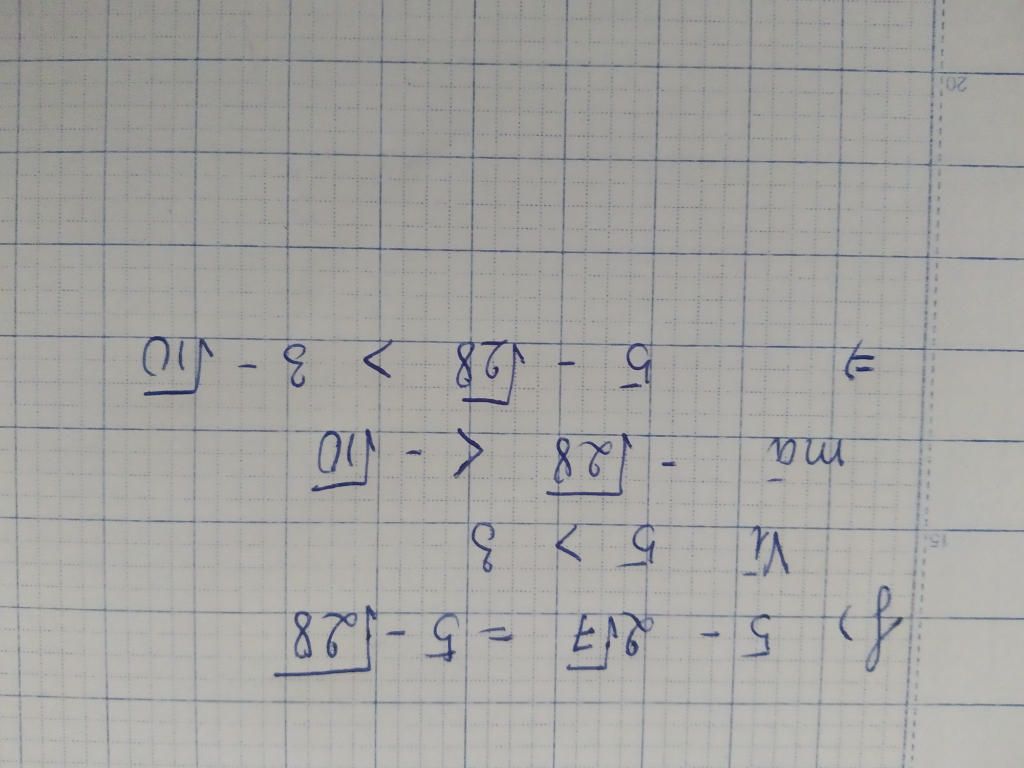 f) 5 - 2√7 = 5 - √28
Vì 5 > 3
15
mà - √28 < - √10
=> 5 - √28 > 3 - √10
20